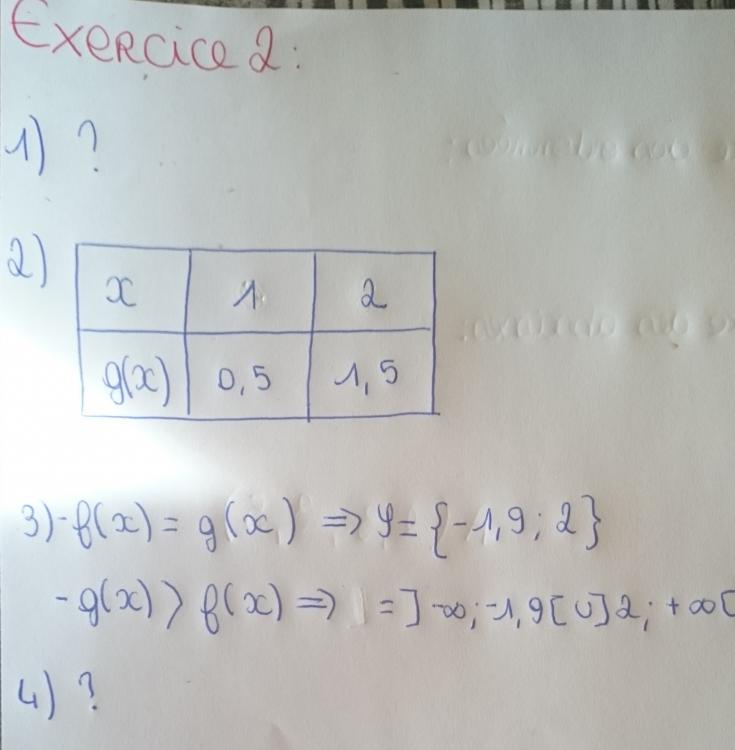 Exercice 2 :
1) ?
2)
x 1 2
g(x) 0,5 1,5
3) - f(x) = g(x) => S = {-1,9 ; 2}
- g(x) > f(x) => = ]-∞; -1,9[ U ]2; +∞[
4) ?